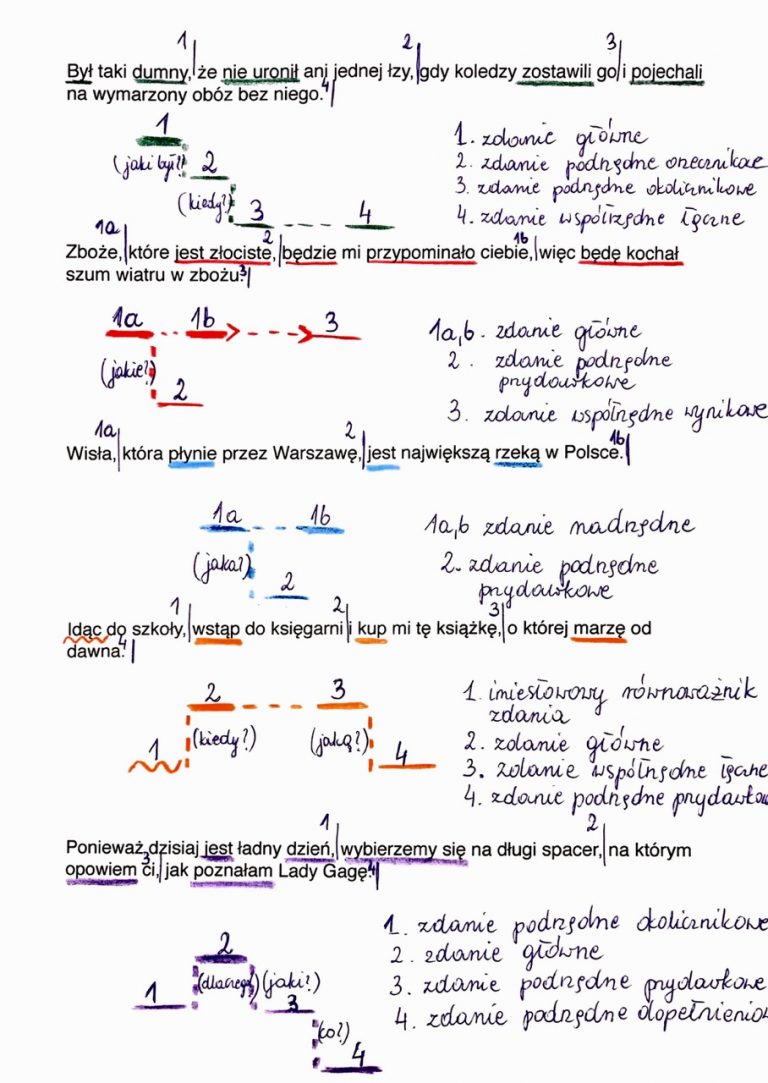 1 2 3
Był taki dumny, że nie uronił ani jednej łzy, gdy koledzy zostawili go i pojechali
na wymarzony obóz bez niego. 4
1
(jaki był?) 2
(kiedy?) 3 4
1. zdanie główne
2. zdanie podrzędne orzecznikowe
3. zdanie podrzędne okolicznikowe
4. zdanie współrzędne łączne
1a 2 1b
Zboże, które jest złociste, będzie mi przypominało ciebie, więc będę kochał
szum wiatru w zbożu. 3
1a 1b 3
(jakie?)
2
1a,b - zdanie główne
2. zdanie podrzędne
przydawkowe
3. zdanie współrzędne wynikowe
1a 2 1b
Wisła, która płynie przez Warszawę, jest największą rzeką w Polsce.
1a 1b
(jaka?)
2
1a,b zdanie nadrzędne
2. zdanie podrzędne
przydawkowe
1 2 3
Idąc do szkoły, wstąp do księgarni i kup mi tę książkę, o której marzę od
dawna. 4
2 3
1 (kiedy?) (jaką?) 4
1. imiesłowowy równoważnik
zdania
2. zdanie główne
3. zdanie współrzędne łączne
4. zdanie podrzędne przydawkow
1 2
Ponieważ dzisiaj jest ładny dzień, wybierzemy się na długi spacer, na którym
3
opowiem ci, jak poznałam Lady Gagę. 4
2
1 (dlaczego?) (jaki?)
3
(co?)
4
1. zdanie podrzędne okolicznikowe
2. zdanie główne
3. zdanie podrzędne przydawkowe
4. zdanie podrzędne dopełnieniow